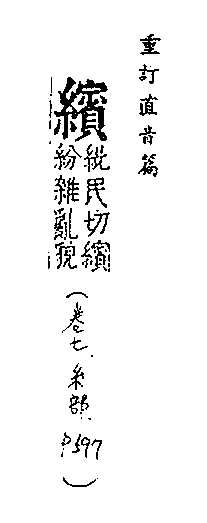 重訂直音篇
繽
紕民切繽
紛雜亂貌
(卷七.糸部 P597)